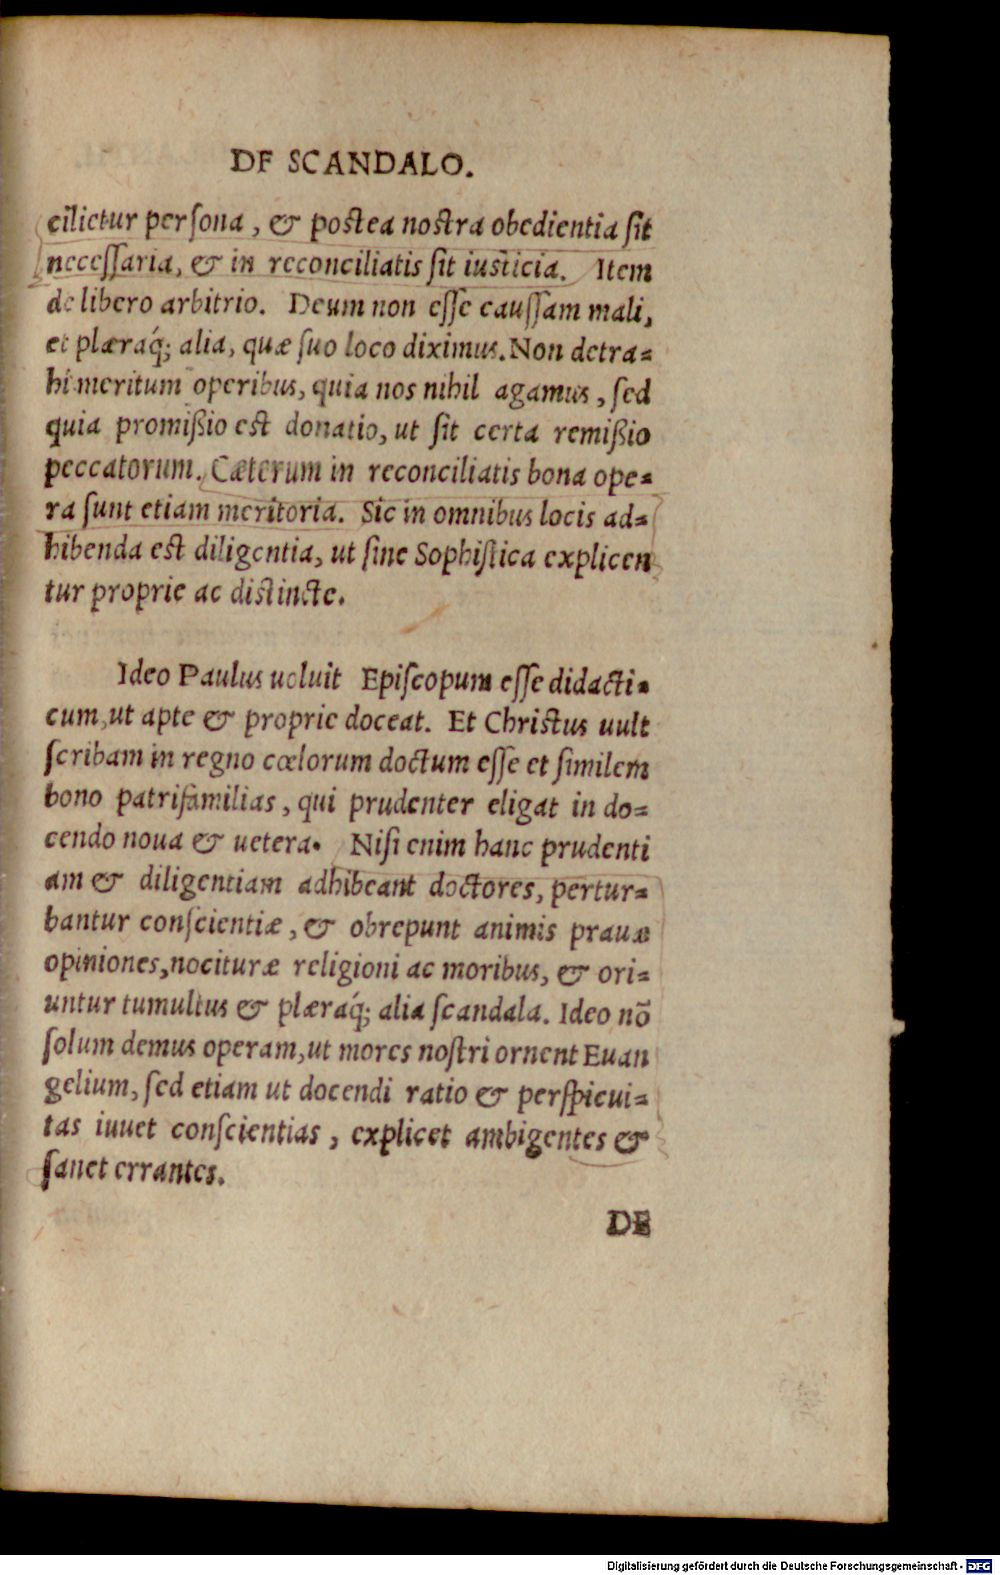 DE SCANDALO.
cilietur persona, & postea nostra obedientia sit
necessaria, & in reconciliatis sit iusticia. Item
de libero arbitrio. Deum non esse caussam mali,
et plæraq́; alia, quæ suo loco diximus. Non detra=
hi meritum operibus, quia nos nihil agamus, sed
quia promißio est donatio, ut sit certa remißio
peccatorum. Cæterum in reconciliatis bona ope=
ra sunt etiam meritoria. Sic in omnibus locis ad=
hibenda est diligentia, ut sine Sophistica explicen
tur proprie ac distincte.
Ideo Paulus uoluit Episcopum esse didacti=
cum, ut apte & proprie doceat. Et Christus uult
scribam in regno cœlorum doctum esse et similem
bono patrifamilias, qui prudenter eligat in do=
cendo noua & uetera. Nisi enim hanc prudenti
am & diligentiam adhibeant doctores, pertur=
bantur conscientiæ, & obrepunt animis prauæ
opiniones, nocituræ religioni ac moribus, & ori=
untur tumultus & plæraq́; alia scandala. Ideo nõ
solum demus operam, ut mores nostri ornent Euan
gelium, sed etiam ut docendi ratio & perspicui=
tas iuuet conscientias, explicet ambigentes &
sanet errantes.
DE
Digitalisierung gefördert durch die Deutsche Forschungsgemeinschaft - DFG